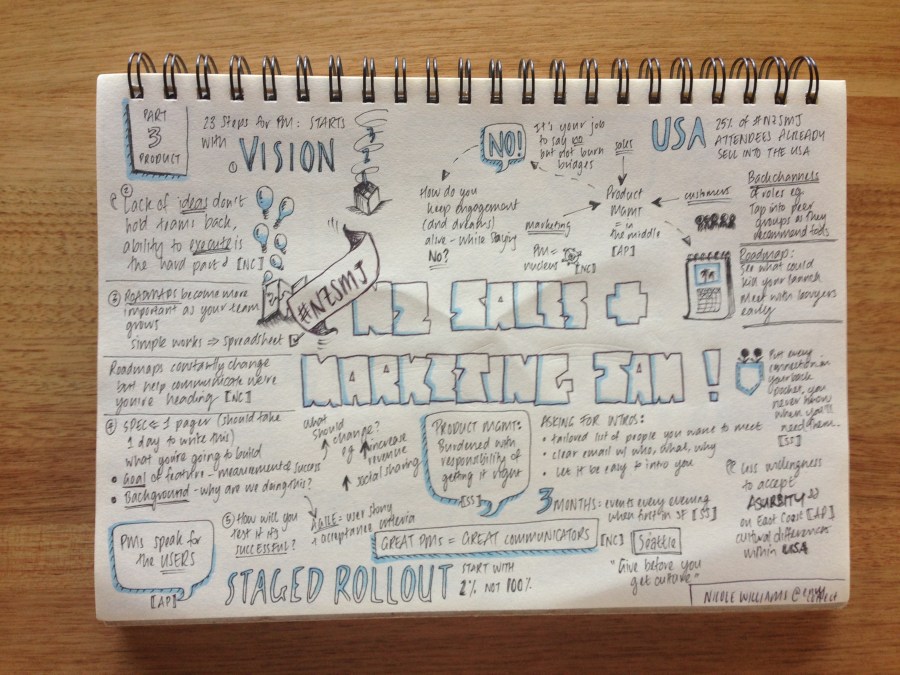 PART
3
PRODUCT
23 Steps for PM: STARTS
WITH
① VISION
②
Lack of ideas don't
hold teams back,
ability to execute is
the hard part [NC]
③ ROADMAPS become more
important as your team
grows
simple works ⇒ spreadsheet
Roadmaps constantly change
but help communicate where
you're heading [NC]
④ SPEC 1 pager (should take
1 day to write this)
what you're going to build
• Goal of feature - measurement & success
• Background - why are we doing this?
PMs speak for
the USERS
[AP]
⑤ How will you
test if it's
SUCCESSFUL?
What
should
change?
eg ↑ increase
revenue
↑ social sharing
AGILE = user story
+ acceptance criteria
STAGED ROLLOUT
START WITH
2% NOT 100%
#NZSMJ
NZ SALES +
MARKETING JAM!
NO!
It's your job
to say no
but not burn
bridges
How do you
keep engagement
(and dreams)
alive - while staying
NO?
sales
marketing
customers
Product
MGMT
= in
the middle
[AP]
PM =
nucleus
[NC]
PRODUCT MGMT:
Burdened with
responsibility of
getting it right
[SS]
GREAT PMs = GREAT COMMUNICATORS
[NC]
USA
25% of #NZSMJ
ATTENDEES ALREADY
SELL INTO THE USA
Backchannels
of roles eg
Tap into peer
groups as they
recommend tools
Roadmap:
See what could
kill your launch
Meet with lawyers
early
Put every
connection in
your back
pocket, you
never know
when you'll
need them
[SS]
ASKING FOR INTROS:
• tailored list of people you want to meet
• clear email w/ who, what, why
• Let it be easy to intro you
3 MONTHS: events every evening
when first in SF [SS]
Seattle
"Give before you
get culture"
Less willingness
to accept
on East Coast [AP]
cultural differences
within USA
NICOLE WILLIAMS